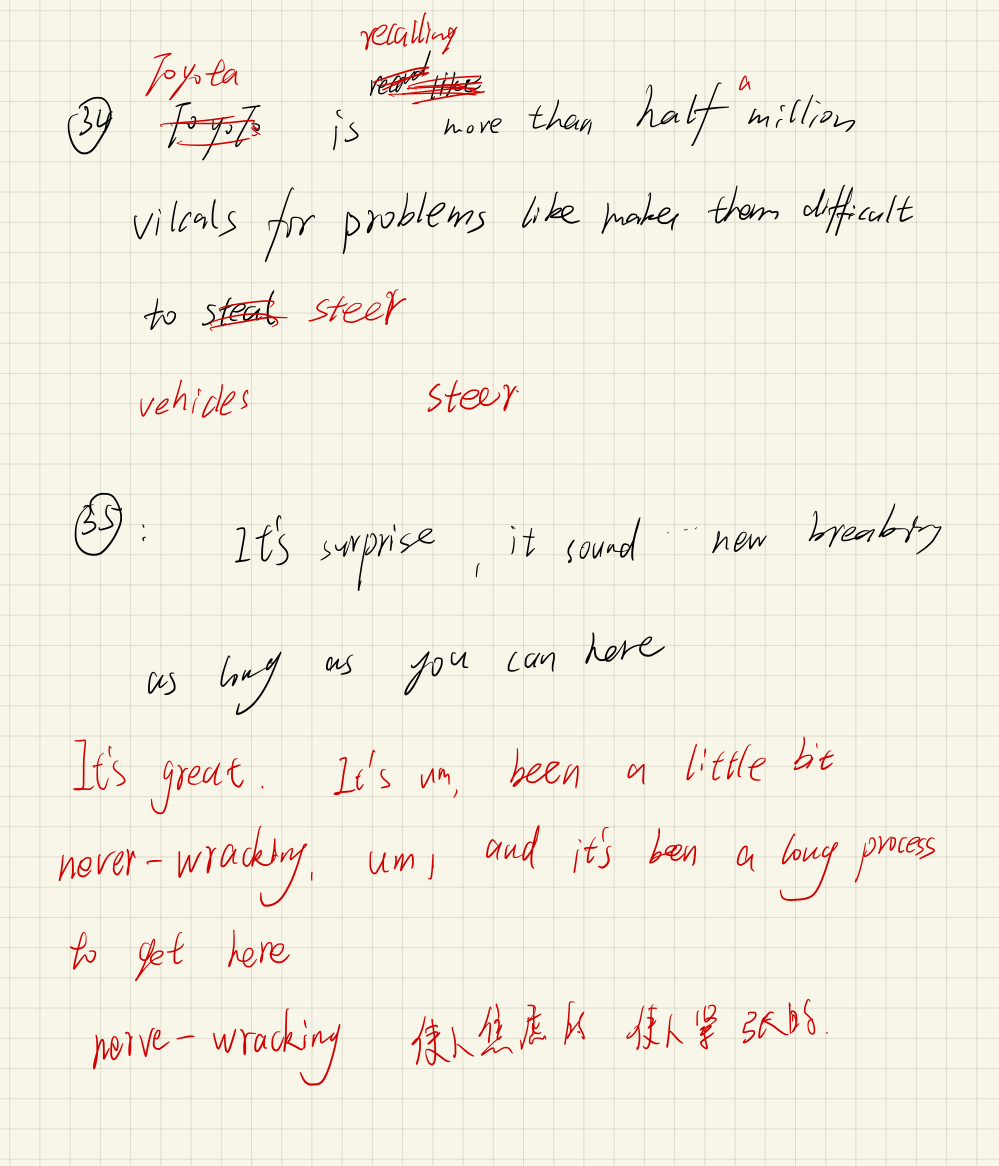 recalling
Toyota read like a
34 ToyoTo is more than half million
vilcals for problems like makes them difficult
to steal steer
vehicles steer
35 : It's surprise, it sound ... new breaking
as long as you can here
It's great. It's um, been a little bit
never-wracking, um, and it's been a long process
to get here
nerve-wracking 使人焦虑的 使人紧张的.